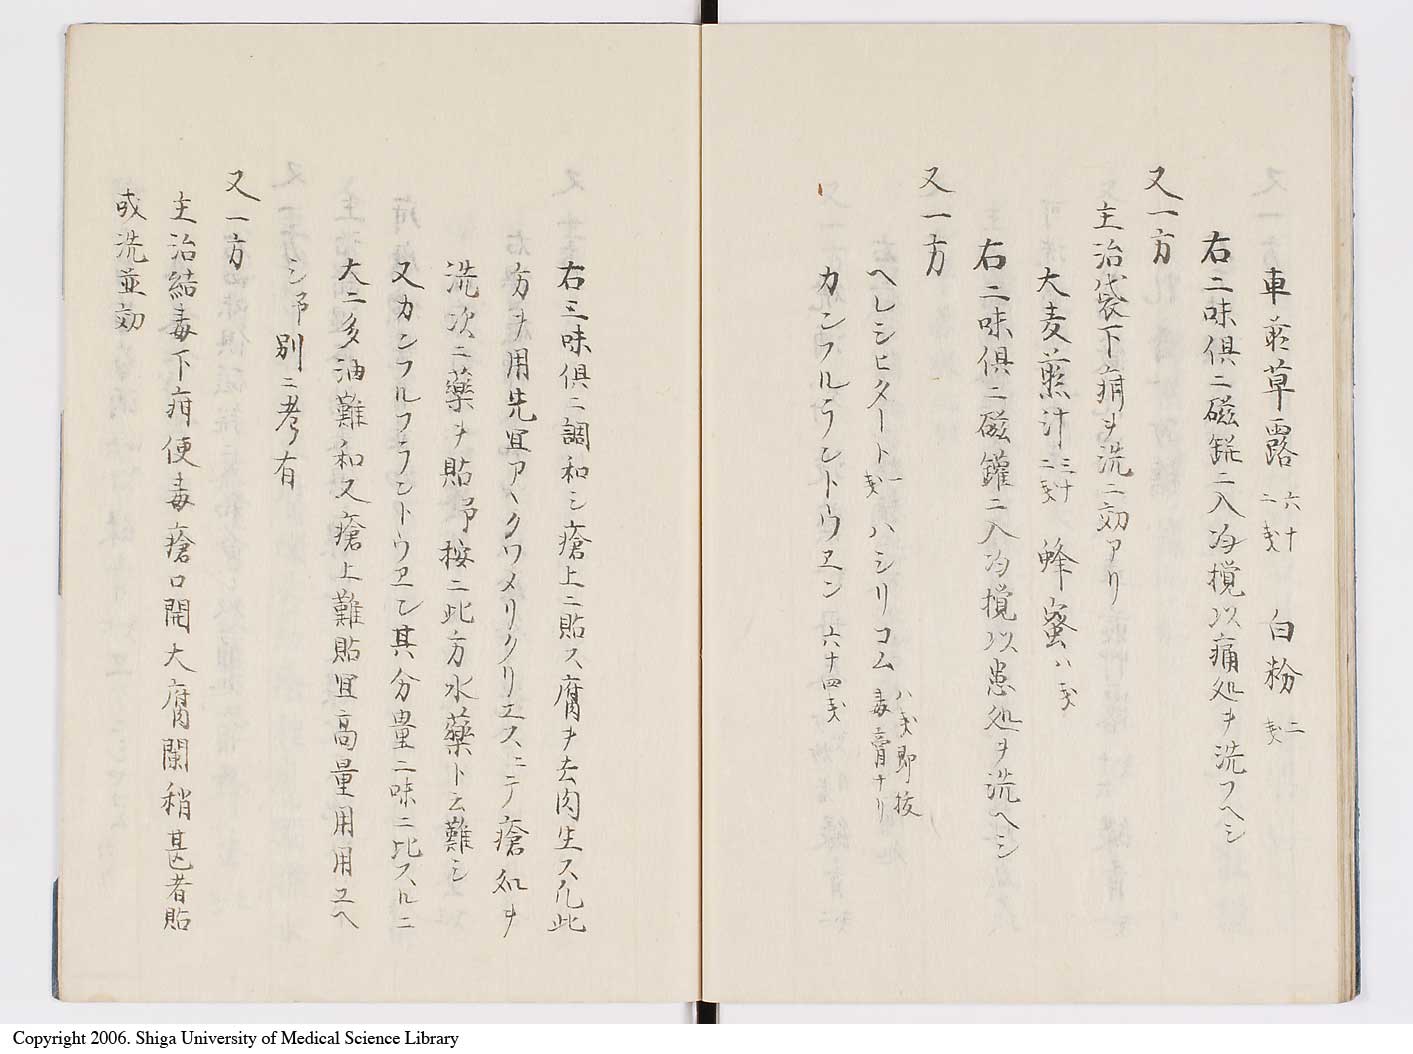 車前草露 六十二戔 白粉 二戔
右二味倶ニ磁鋩ニ入冷攪以痛処ヲ洗フヘシ
又一方
主治袋下痟ヲ洗ニ効アリ
大麦煎汁 三十二戔 蜂蜜 八戔
右二味倶ニ磁鑵ニ入冷攪以患処ヲ洗ヘシ
又一方
ヘレシヒタート 一戔 ハシリコム 八戔即抜毒膏ナリ
カンフルラントウヱン 六十四戔
右三味倶ニ調和シ瘡上ニ貼ス腐ヲ去肉生ス凡此
方ヲ用先冝アヽクワメリクリエスニテ瘡処ヲ
洗次ニ藥ヲ貼予按ニ此方水藥ト云難シ
又カンフルフラントウヱン其分豊二味ニ比スルニ
大ニ多油難和又瘡上難貼冝高量用用ユヘ
シ予別ニ考有
又一方
主治結毒下疳便毒瘡口開大腐闌稍甚者貼
或洗並効
Copyright 2006. Shiga University of Medical Science Library